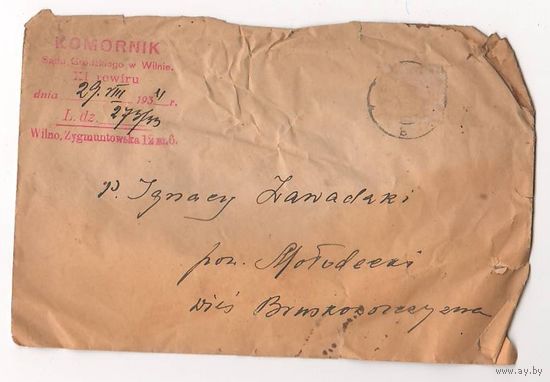 KOMORNIK
Sądu Grodzkiego w Wilnie.
XI rewiru
dnia 29. VIII 193 r.
L. dz. 273/33
Wilno, Zygmuntowska 12 m. 6.
P. Ignacy Zawadzki
pow. Mołodecki
wieś
www.ay.by